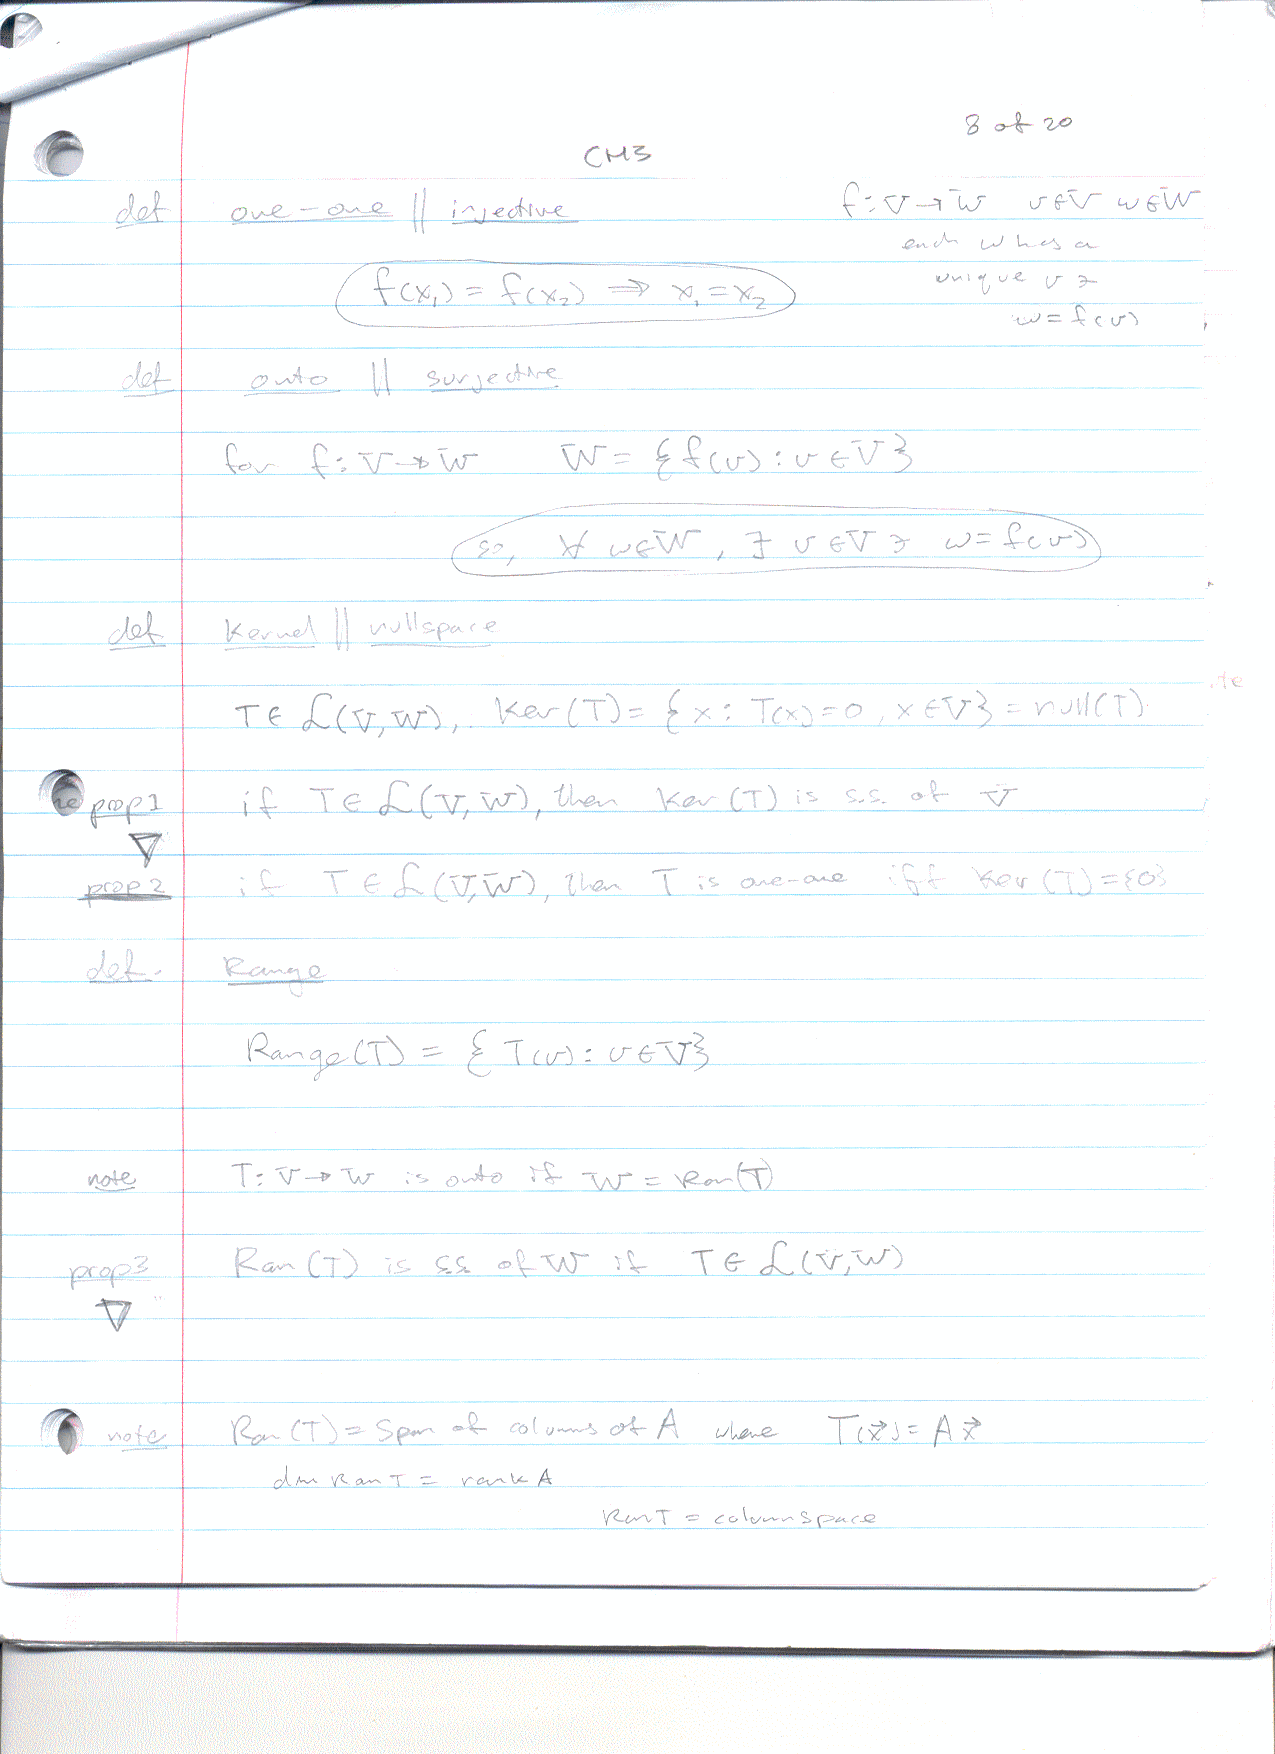 8 of 20
CH3
def one-one || injective f: V → W v∈V w∈W
each w has a
unique v ∋
w = f(v)
f(x₁) = f(x₂) ⇒ x₁ = x₂
def onto || surjective
for f: V → W W = {f(v) : v ∈ V}
so, ∀ w∈W, ∃ v∈V ∋ w = f(v)
def Kernel || nullspace
T ∈ ℒ(V,W), Ker(T) = {x : T(x)=0, x∈V} = null(T)
prop1 if T ∈ ℒ(V,W), then Ker(T) is s.s. of V
▽
prop2 if T ∈ ℒ(V,W), then T is one-one iff Ker(T)={0}
def. Range
Range(T) = {T(v) : v∈V}
note T: V → W is onto if W = Ran(T)
prop3 Ran(T) is s.s. of W if T ∈ ℒ(V,W)
▽
note Ran(T) = Span of columns of A where T(x⃗) = Ax⃗
dim Ran T = rank A
Ran T = columnspace